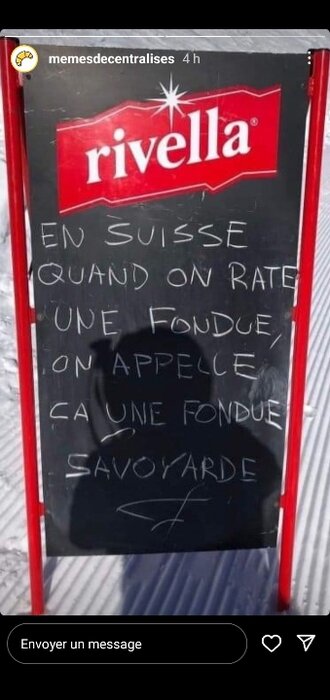 memesdecentralises 4 h
rivella®
EN SUISSE
QUAND ON RATE
UNE FONDUE,
ON APPELLE
ÇA UNE FONDUE
SAVOYARDE
Envoyer un message